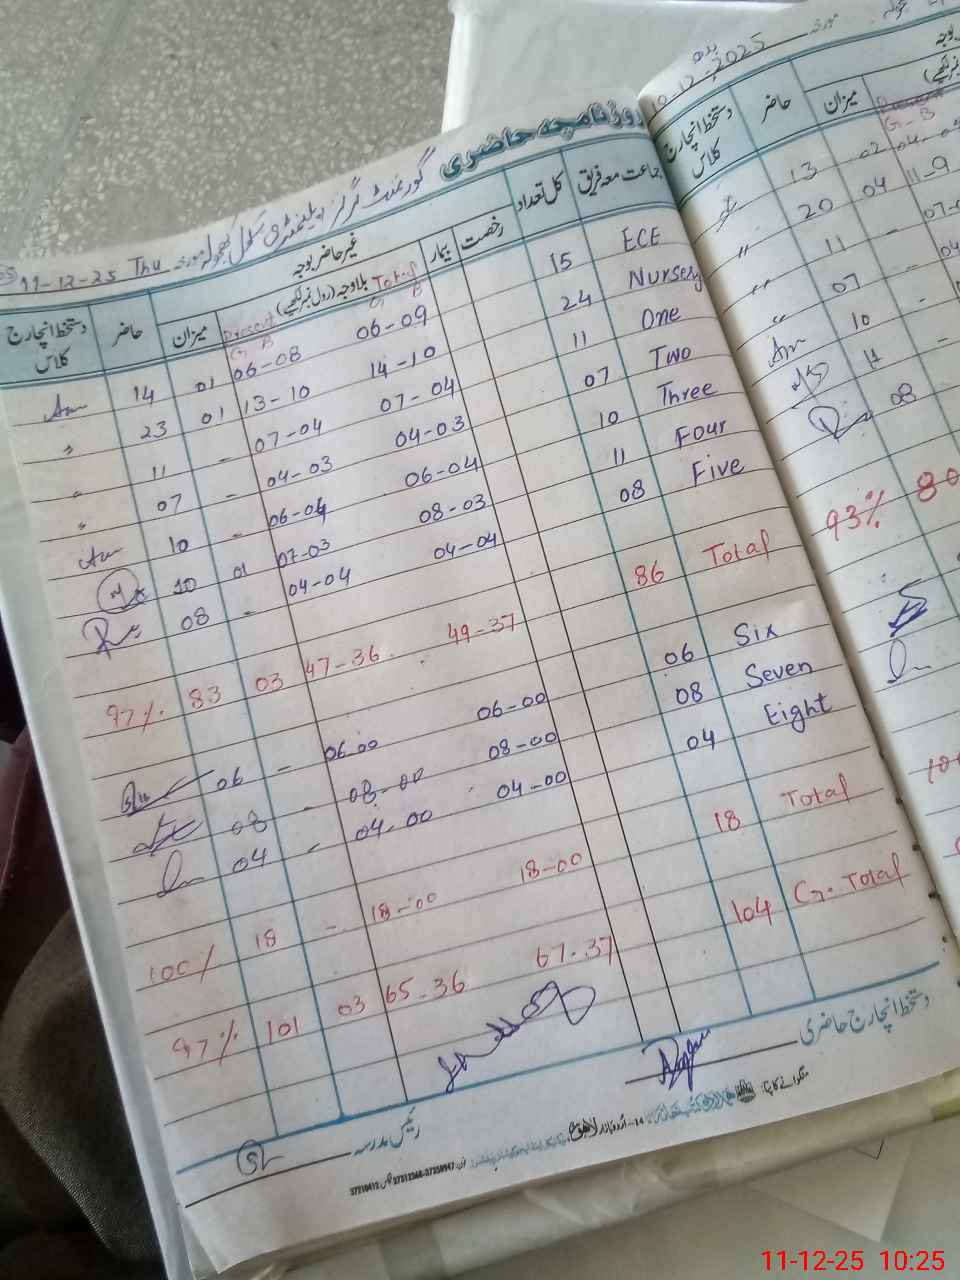 روزنامچہ حاضری
گورنمنٹ گرلز ایلیمنٹری سکول مورخہ 11-12-25 Thu
جماعت معہ فریق کل تعداد رخصت بیمار غیر حاضر بوجہ بلاوجہ (رول نمبر لکھیے) میزان حاضر دستخط انچارج کلاس
Total G B Present G B
ECE 15 06-09 06-08 01 14
Nursery 24 14-10 13-10 01 23
One 11 07-04 07-04 - 11
Two 07 04-03 04-03 - 07
Three 10 06-04 06-04 - 10
Four 11 08-03 07-03 01 10
Five 08 04-04 04-04 - 08
Total 86 49-37 47-36 03 83 97%
Six 06 06-00 06-00 - 06
Seven 08 08-00 08-00 - 08
Eight 04 04-00 04-00 - 04
Total 18 18-00 18-00 - 18 100%
G. Total 104 67-37 65-36 03 101 97%
دستخط انچارج حاضری
رئیس مدرسہ
10-12-2025 مورخہ
میزان حاضر دستخط انچارج کلاس
Present
G-B
02 13
11-9 04 20
11
07
10
11
08
93%
11-12-25 10:25